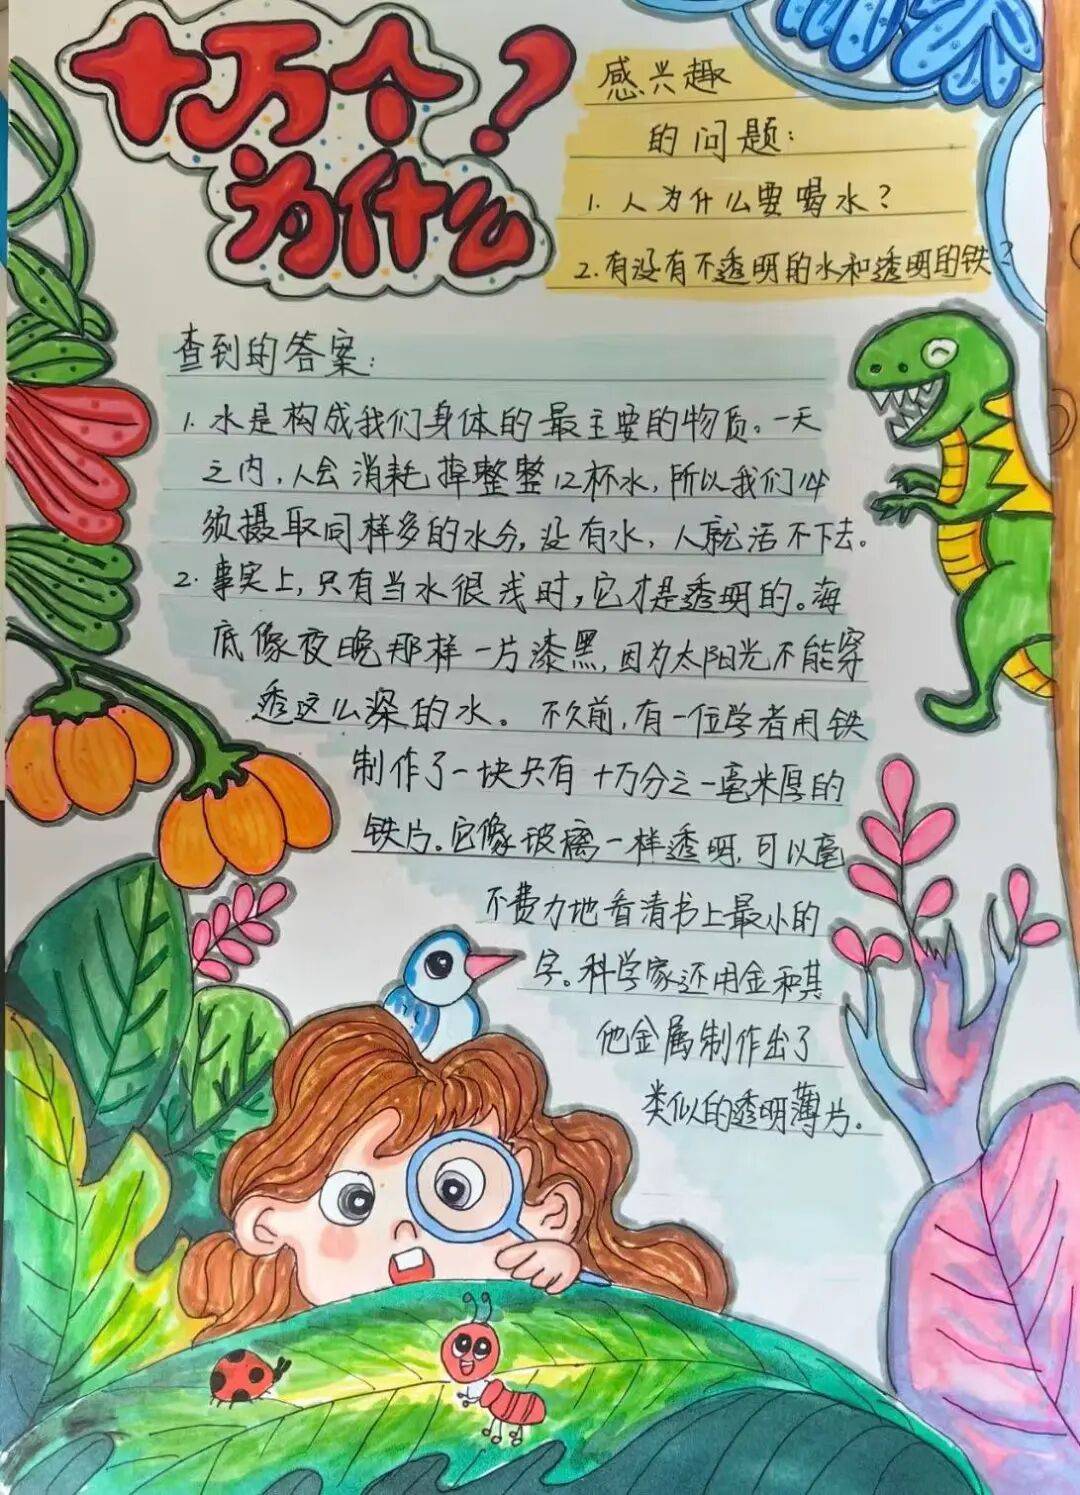 十万个？
为什么
感兴趣
的问题：
1. 人为什么要喝水？
2. 有没有不透明的水和透明的铁？
查到的答案：
1. 水是构成我们身体的最主要的物质。一天
之内，人会消耗掉整整12杯水，所以我们必
须摄取同样多的水分，没有水，人就活不下去。
2. 事实上，只有当水很浅时，它才是透明的。海
底像夜晚那样一片漆黑，因为太阳光不能穿
透这么深的水。不久前，有一位学者用铁
制作了一块只有十万分之一毫米厚的
铁片。它像玻璃一样透明，可以毫
不费力地看清书上最小的
字。科学家还用金和其
他金属制作出了
类似的透明薄片。